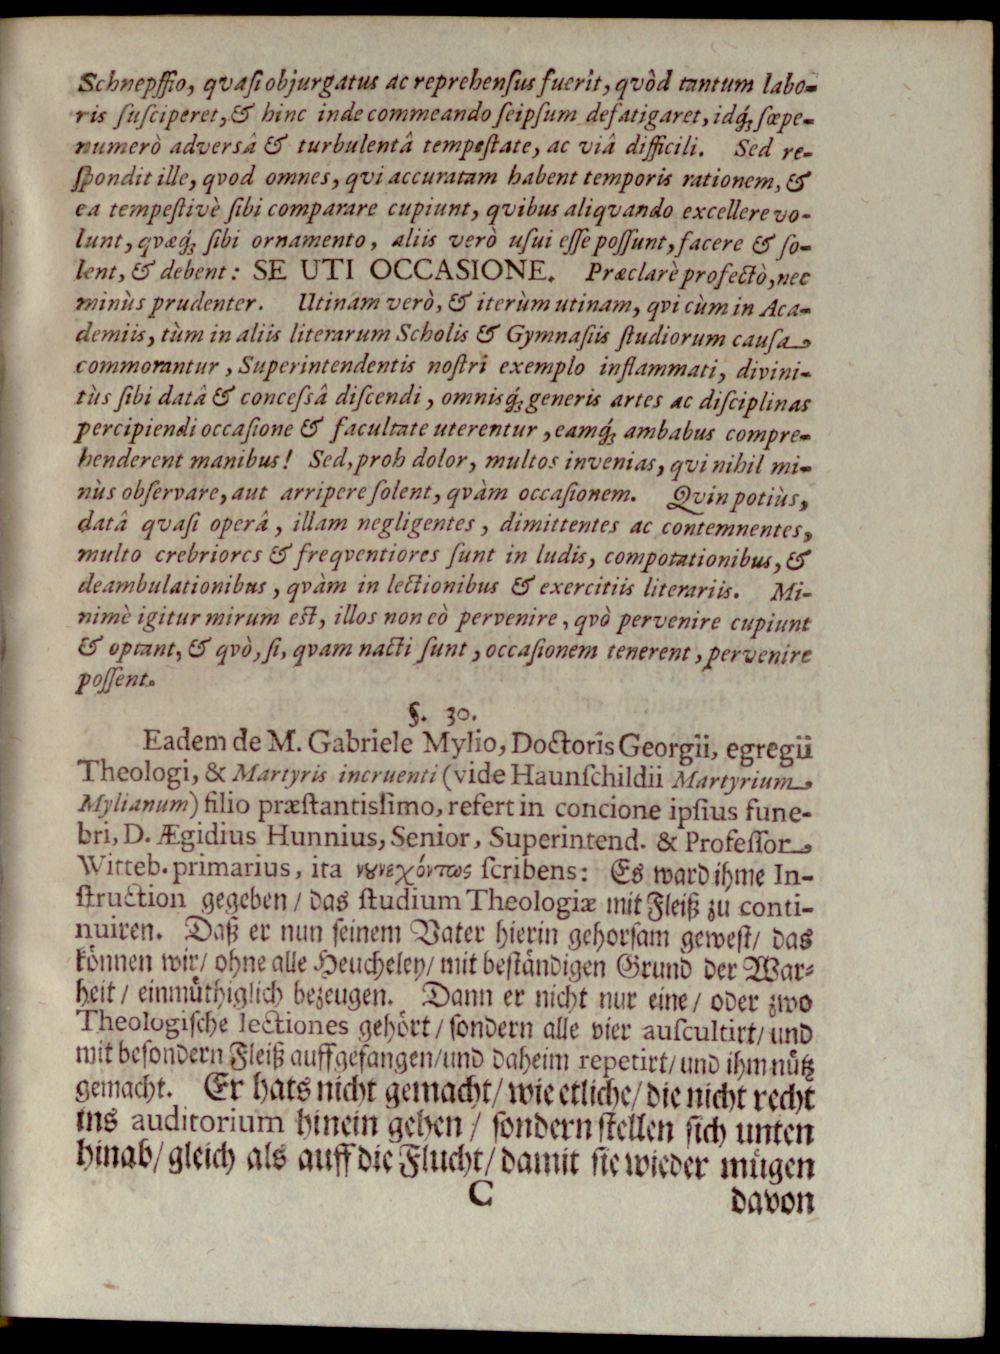 Schnepffio, qvaſi objurgatus ac reprehenſus fuerit, qvòd tantum labo-
ris ſuſciperet, & hinc inde commeando ſeipſum defatigaret, idq́; ſæpe-
numerò adversâ & turbulentâ tempeſtate, ac viâ difficili. Sed re-
ſpondit ille, qvod omnes, qvi accuratam habent temporis rationem, &
ea tempeſtivè ſibi comparare cupiunt, qvibus aliqvando excellere vo-
lunt, qvæq́; ſibi ornamento, aliis verò uſui eſſe poſſunt, facere & ſo-
lent, & debent: SE UTI OCCASIONE. Præclarè profectò, nec
minùs prudenter. Utinam verò, & iterùm utinam, qvi cùm in Aca-
demiis, tùm in aliis literarum Scholis & Gymnaſiis ſtudiorum cauſa
commorantur, Superintendentis noſtri exemplo inflammati, divini-
tùs ſibi datâ & conceſsâ diſcendi, omnisq́; generis artes ac diſciplinas
percipiendi occaſione & facultate uterentur, eamq́; ambabus compre-
henderent manibus! Sed, proh dolor, multos invenias, qvi nihil mi-
nùs obſervare, aut arripere ſolent, qvàm occaſionem. Qvin potiùs,
datâ qvaſi operâ, illam negligentes, dimittentes ac contemnentes,
multo crebriores & freqventiores ſunt in ludis, compotationibus, &
deambulationibus, qvàm in lectionibus & exercitiis literariis. Mi-
nimè igitur mirum eſt, illos non eò pervenire, qvò pervenire cupiunt
& optant, & qvò, ſi, qvam nacti ſunt, occaſionem tenerent, pervenire
poſſent.
§. 30.
Eadem de M. Gabriele Mylio, Doctoris Georgii, egregii
Theologi, & Martyris incruenti (vide Haunſchildii Martyrium
Mylianum) filio præſtantiſſimo, refert in concione ipſius fune-
bri, D. Ægidius Hunnius, Senior, Superintend. & Profeſſor
Witteb. primarius, ita νȣνεχόντως ſcribens: Es ward ihme In-
ſtruction gegeben / das ſtudium Theologiæ mit Fleiß zu conti-
nuiren. Daß er nun ſeinem Vater hierin gehorſam geweſt / das
können wir / ohne alle Heucheley / mit beſtändigen Grund der War-
heit / einmüthiglich bezeugen. Dann er nicht nur eine / oder zwo
Theologiſche lectiones gehört / ſondern alle vier auſcultirt / und
mit beſondern Fleiß auffgefangen / und daheim repetirt / und ihm nütz
gemacht. Er hats nicht gemacht / wie etliche / die nicht recht
ins auditorium hinein gehen / ſondern ſtellen ſich unten
hinab / gleich als auff die Flucht / damit ſie wieder mügen
C davon